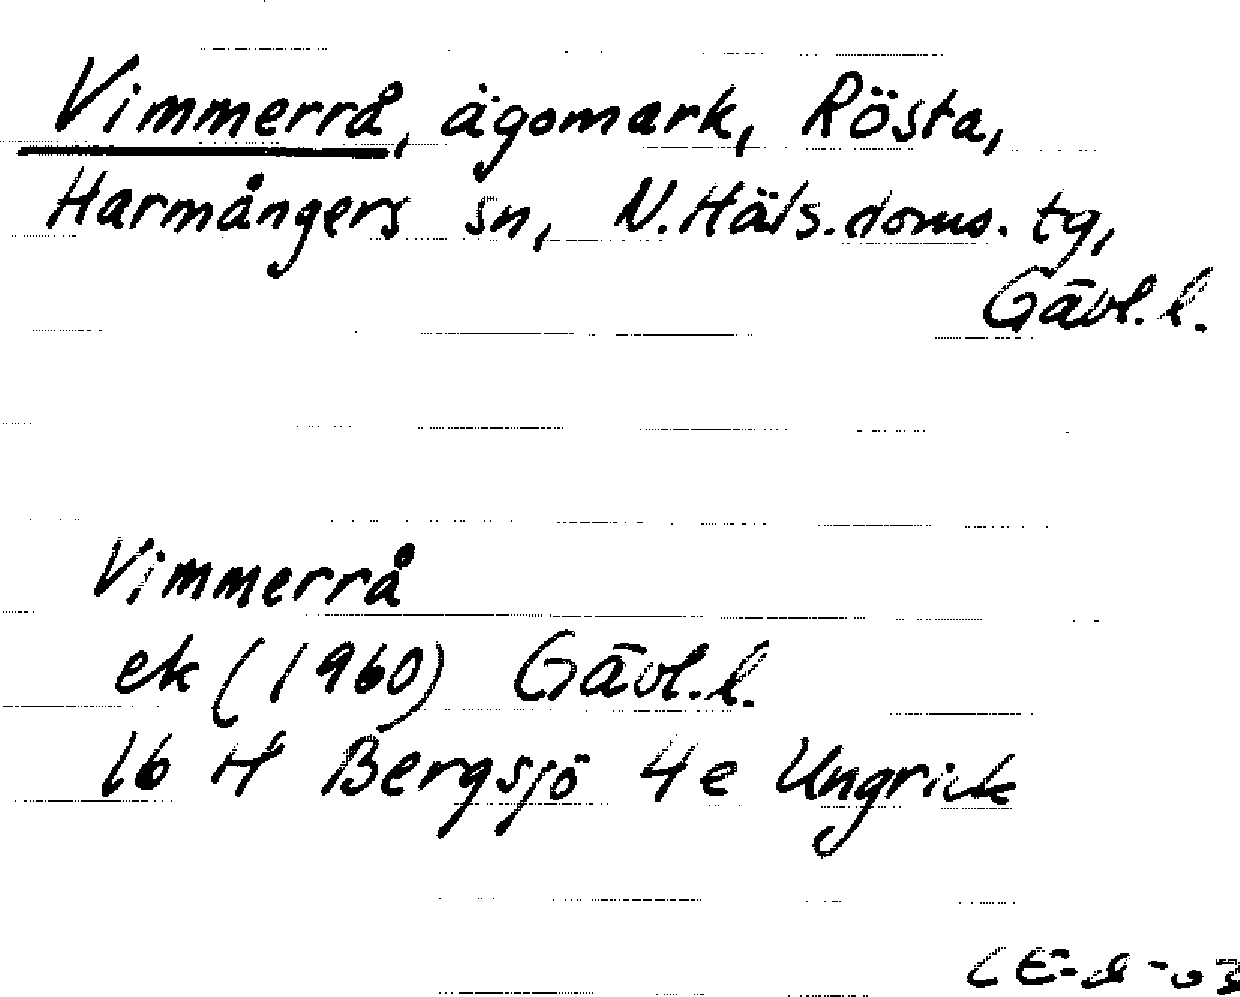 Vimmerrå, ägomark, Rösta,
Harmångers sn, N.Häls.doms.tg,
Gävl.l.
Vimmerrå
ek (1960) Gävl.l.
16 H Bergsjö 4e Ungrick